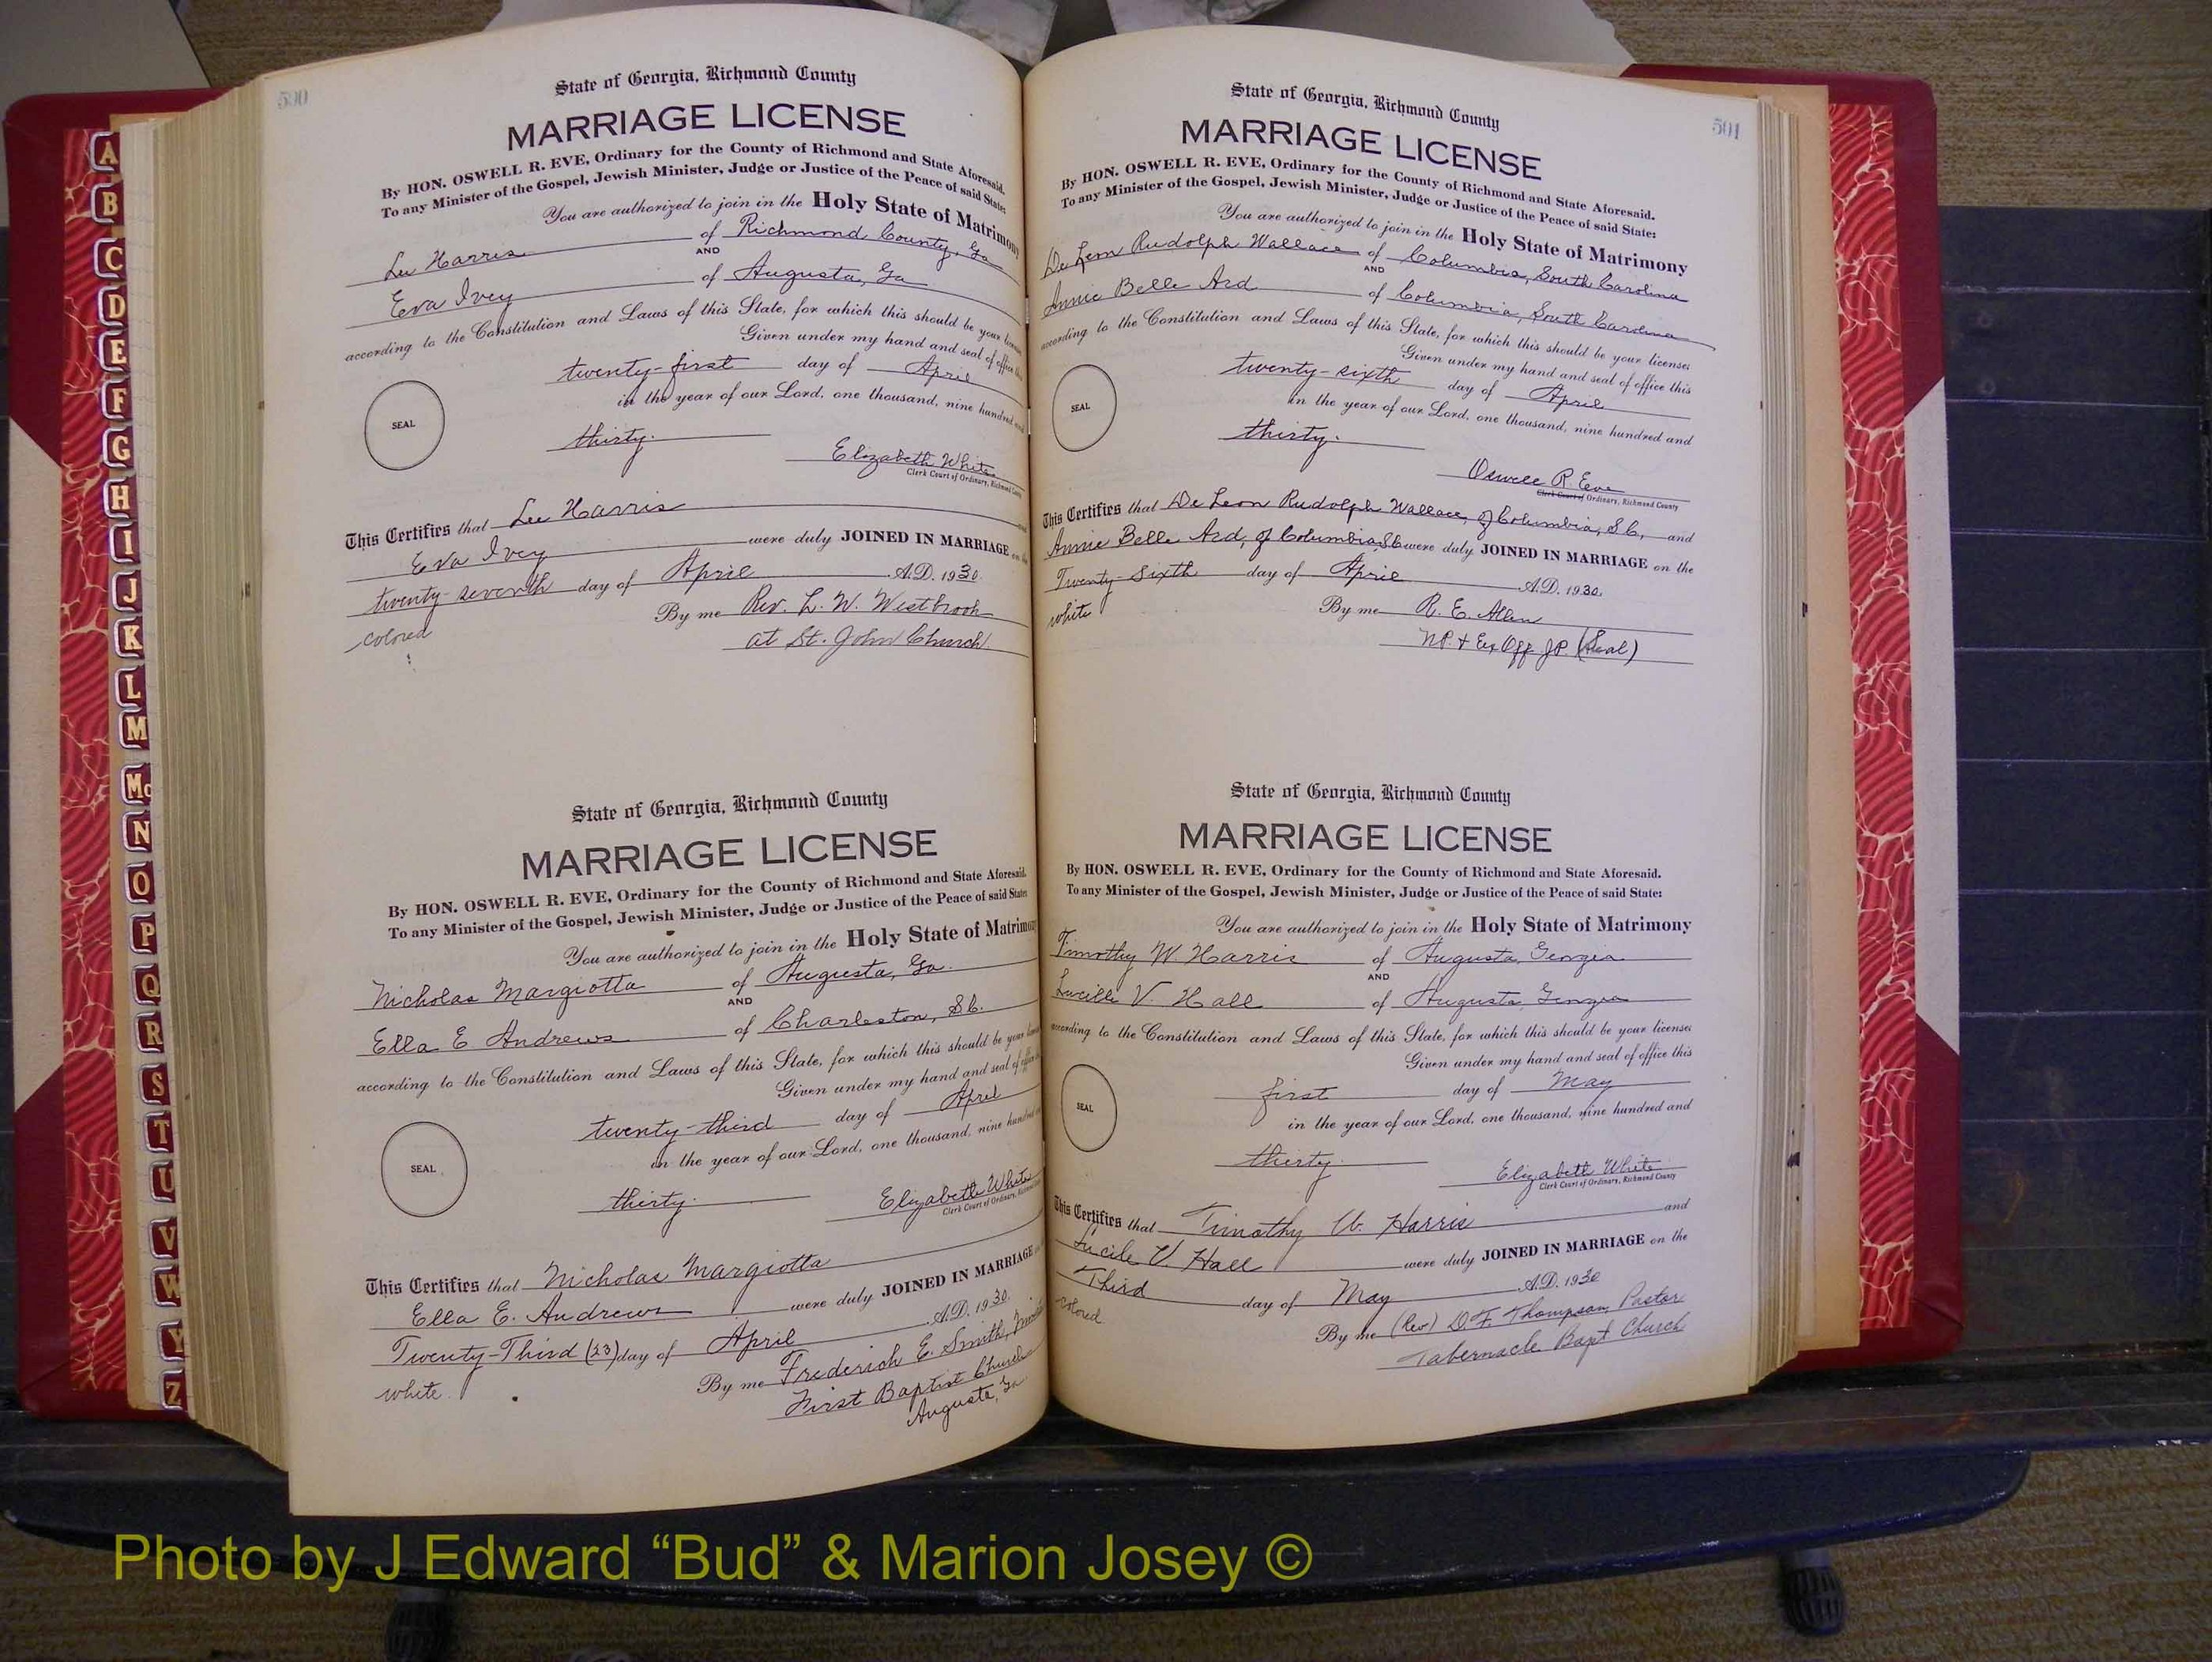 A
B
C
D
E
F
G
H
I
J
K
L
M
Mc
N
O
P
Q
R
S
T
U
V
W
Y
Z
590
State of Georgia, Richmond County
MARRIAGE LICENSE
By HON. OSWELL R. EVE, Ordinary for the County of Richmond and State Aforesaid.
To any Minister of the Gospel, Jewish Minister, Judge or Justice of the Peace of said State:
You are authorized to join in the Holy State of Matrimony
Lee Harris of Richmond County, Ga
AND
Eva Ivey of Augusta, Ga
according to the Constitution and Laws of this State, for which this should be your
Given under my hand and seal of office this
twenty-first day of April
in the year of our Lord, one thousand, nine hundred and
SEAL
thirty.
Elizabeth White
Clerk Court of Ordinary, Richmond County
This Certifies that Lee Harris
Eva Ivey were duly JOINED IN MARRIAGE on
twenty-seventh day of April A.D. 1930.
colored
By me Rev. L. W. Westbrook
at St. John Church
State of Georgia, Richmond County
MARRIAGE LICENSE
By HON. OSWELL R. EVE, Ordinary for the County of Richmond and State Aforesaid.
To any Minister of the Gospel, Jewish Minister, Judge or Justice of the Peace of said State:
You are authorized to join in the Holy State of Matrimony
Nicholas Margiotta of Augusta, Ga.
AND
Ella E Andrews of Charleston, S.C.
according to the Constitution and Laws of this State, for which this should be your
Given under my hand and seal of office
twenty-third day of April
in the year of our Lord, one thousand, nine hundred
SEAL
thirty.
Elizabeth White
Clerk Court of Ordinary, Richmond
This Certifies that Nicholas Margiotta
Ella E. Andrews were duly JOINED IN MARRIAGE
Twenty-Third (23) day of April A.D. 1930.
white.
By me Frederick E. Smith,
First Baptist Church
Augusta, Ga
501
State of Georgia, Richmond County
MARRIAGE LICENSE
By HON. OSWELL R. EVE, Ordinary for the County of Richmond and State Aforesaid.
To any Minister of the Gospel, Jewish Minister, Judge or Justice of the Peace of said State:
You are authorized to join in the Holy State of Matrimony
De Leon Rudolph Wallace of Columbia, South Carolina
AND
Annie Belle Ard of Columbia, South Carolina
according to the Constitution and Laws of this State, for which this should be your licenses
Given under my hand and seal of office this
twenty-sixth day of April
in the year of our Lord, one thousand, nine hundred and
SEAL
thirty.
Oswell R. Eve
Clerk Court of Ordinary, Richmond County
This Certifies that De Leon Rudolph Wallace, of Columbia, S.C., and
Annie Belle Ard, of Columbia S.C were duly JOINED IN MARRIAGE on the
Twenty Sixth day of April A.D. 1930.
white
By me R. E. Allen
N.P. & Ex Off J.P. (Seal)
State of Georgia, Richmond County
MARRIAGE LICENSE
By HON. OSWELL R. EVE, Ordinary for the County of Richmond and State Aforesaid.
To any Minister of the Gospel, Jewish Minister, Judge or Justice of the Peace of said State:
You are authorized to join in the Holy State of Matrimony
Timothy W. Harris of Augusta, Georgia
AND
Lucille V. Hall of Augusta, Georgia
according to the Constitution and Laws of this State, for which this should be your licenses
Given under my hand and seal of office this
first day of May
in the year of our Lord, one thousand, nine hundred and
SEAL
thirty.
Elizabeth White
Clerk Court of Ordinary, Richmond County
This Certifies that Timothy W. Harris and
Lucile V. Hall were duly JOINED IN MARRIAGE on the
Third day of May A.D. 1930
colored.
By me (Rev) D. F. Thompson, Pastor
Tabernacle Bapt Church
Photo by J Edward “Bud” & Marion Josey ©